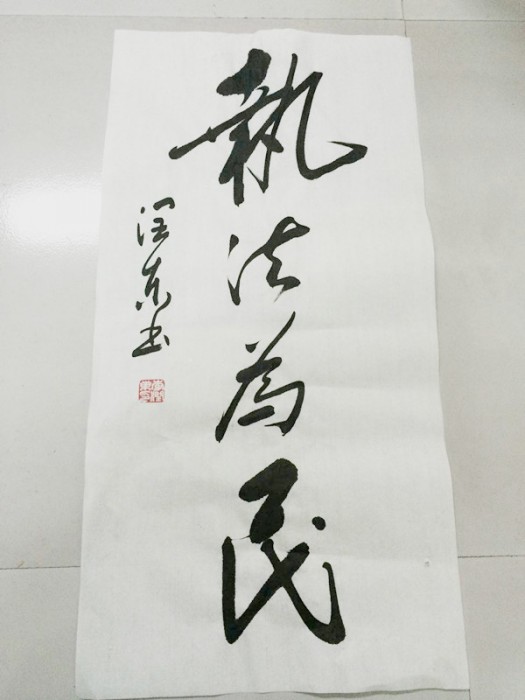 執法為民
东书